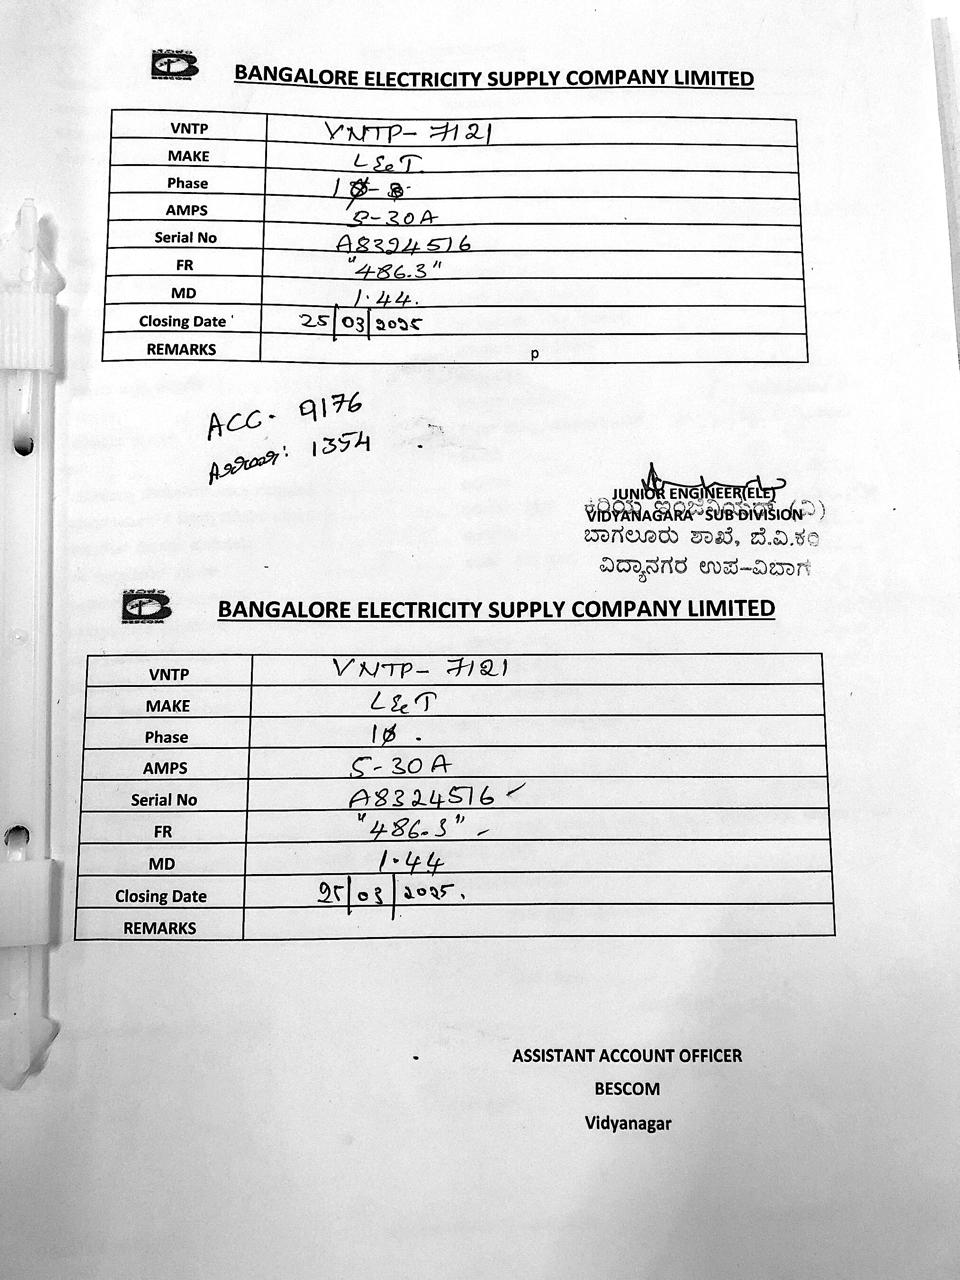 ಬೆವಿಕಂ
BESCOM
BANGALORE ELECTRICITY SUPPLY COMPANY LIMITED
VNTP VNTP- 7121
MAKE L&T.
Phase 1
AMPS 5-30A
Serial No A8324516
FR "486.3"
MD 1.44.
Closing Date 25/03/2025
REMARKS p
ACC- 9176
1354
JUNIOR ENGINEER(ELE)
VIDYANAGARA SUB DIVISION
ಕಿರಿಯ ಇಂಜಿನಿಯರ್ (ವಿ)
ಬಾಗಲೂರು ಶಾಖೆ, ಬೆ.ವಿ.ಕಂ
ವಿದ್ಯಾನಗರ ಉಪ-ವಿಬಾಗ
ಬೆವಿಕಂ
BESCOM
BANGALORE ELECTRICITY SUPPLY COMPANY LIMITED
VNTP VNTP- 7121
MAKE L&T
Phase 1ϕ.
AMPS 5-30A
Serial No A8324516
FR "486.3"
MD 1.44
Closing Date 25/03/2025.
REMARKS
ASSISTANT ACCOUNT OFFICER
BESCOM
Vidyanagar